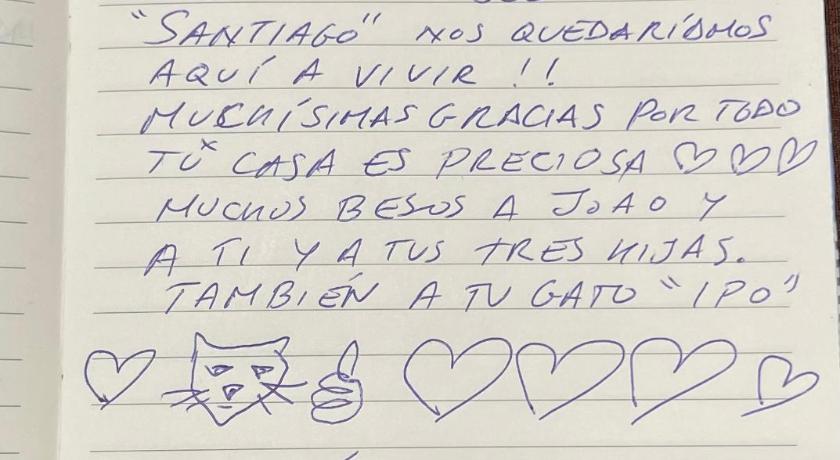 "SANTIAGO" NOS QUEDARÍAMOS
AQUÍ A VIVIR !!
MUCHÍSIMAS GRACIAS POR TODO
TU CASA ES PRECIOSA ♡ ♡ ♡
MUCHOS BESOS A JOAO Y
A TI Y A TUS TRES HIJAS.
TAMBIÉN A TU GATO "IPO"